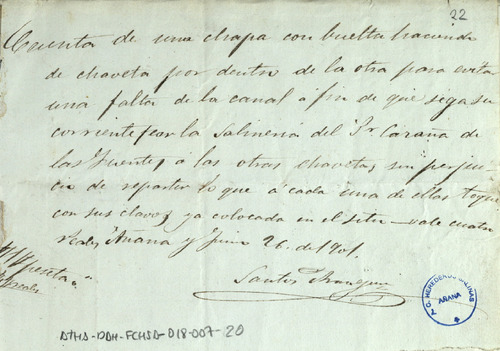 22
Cuenta de una chapa con buelta haciendo
de chaveta por dentro de la otra para evitar
una falta de la canal á fin de que siga su
corriente por la Salineria del Sr Caraña de
las fuentes, a las otras chavetas, sin perjui-
cio de repartir lo que á cada una de ellas toque
con sus clavos, ya colocada en el sitio vale cuatro
reales, Añana y Junio 26. de 1901.
Santos
C. G. HEREDEROS SALINAS
AÑANA
ATHA-DAH-FCHSA-D18-007-20